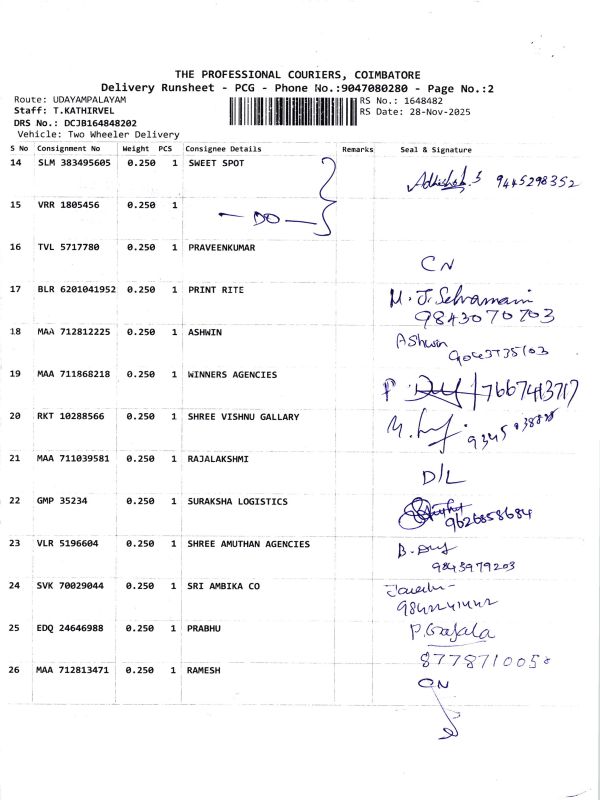 THE PROFESSIONAL COURIERS, COIMBATORE
Delivery Runsheet - PCG - Phone No.:9047080280 - Page No.:2
Route: UDAYAMPALAYAM
RS No.: 1648482
Staff: T.KATHIRVEL
RS Date: 28-Nov-2025
DRS No.: DCJB164848202
Vehicle: Two Wheeler Delivery
S No Consignment No Weight PCS Consignee Details Remarks Seal & Signature
14 SLM 383495605 0.250 1 SWEET SPOT
9445298352
15 VRR 1805456 0.250 1
— DO —
16 TVL 5717780 0.250 1 PRAVEENKUMAR
CN
17 BLR 6201041952 0.250 1 PRINT RITE
M. J. Selvamani
9843070703
18 MAA 712812225 0.250 1 ASHWIN
Ashwin
19 MAA 711868218 0.250 1 WINNERS AGENCIES
7667413717
20 RKT 10288566 0.250 1 SHREE VISHNU GALLARY
21 MAA 711039581 0.250 1 RAJALAKSHMI
D/L
22 GMP 35234 0.250 1 SURAKSHA LOGISTICS
9626858684
23 VLR 5196604 0.250 1 SHREE AMUTHAN AGENCIES
9843979203
24 SVK 70029044 0.250 1 SRI AMBIKA CO
9842241442
25 EDQ 24646988 0.250 1 PRABHU
P. Gajala
8778710058
26 MAA 712813471 0.250 1 RAMESH
CN